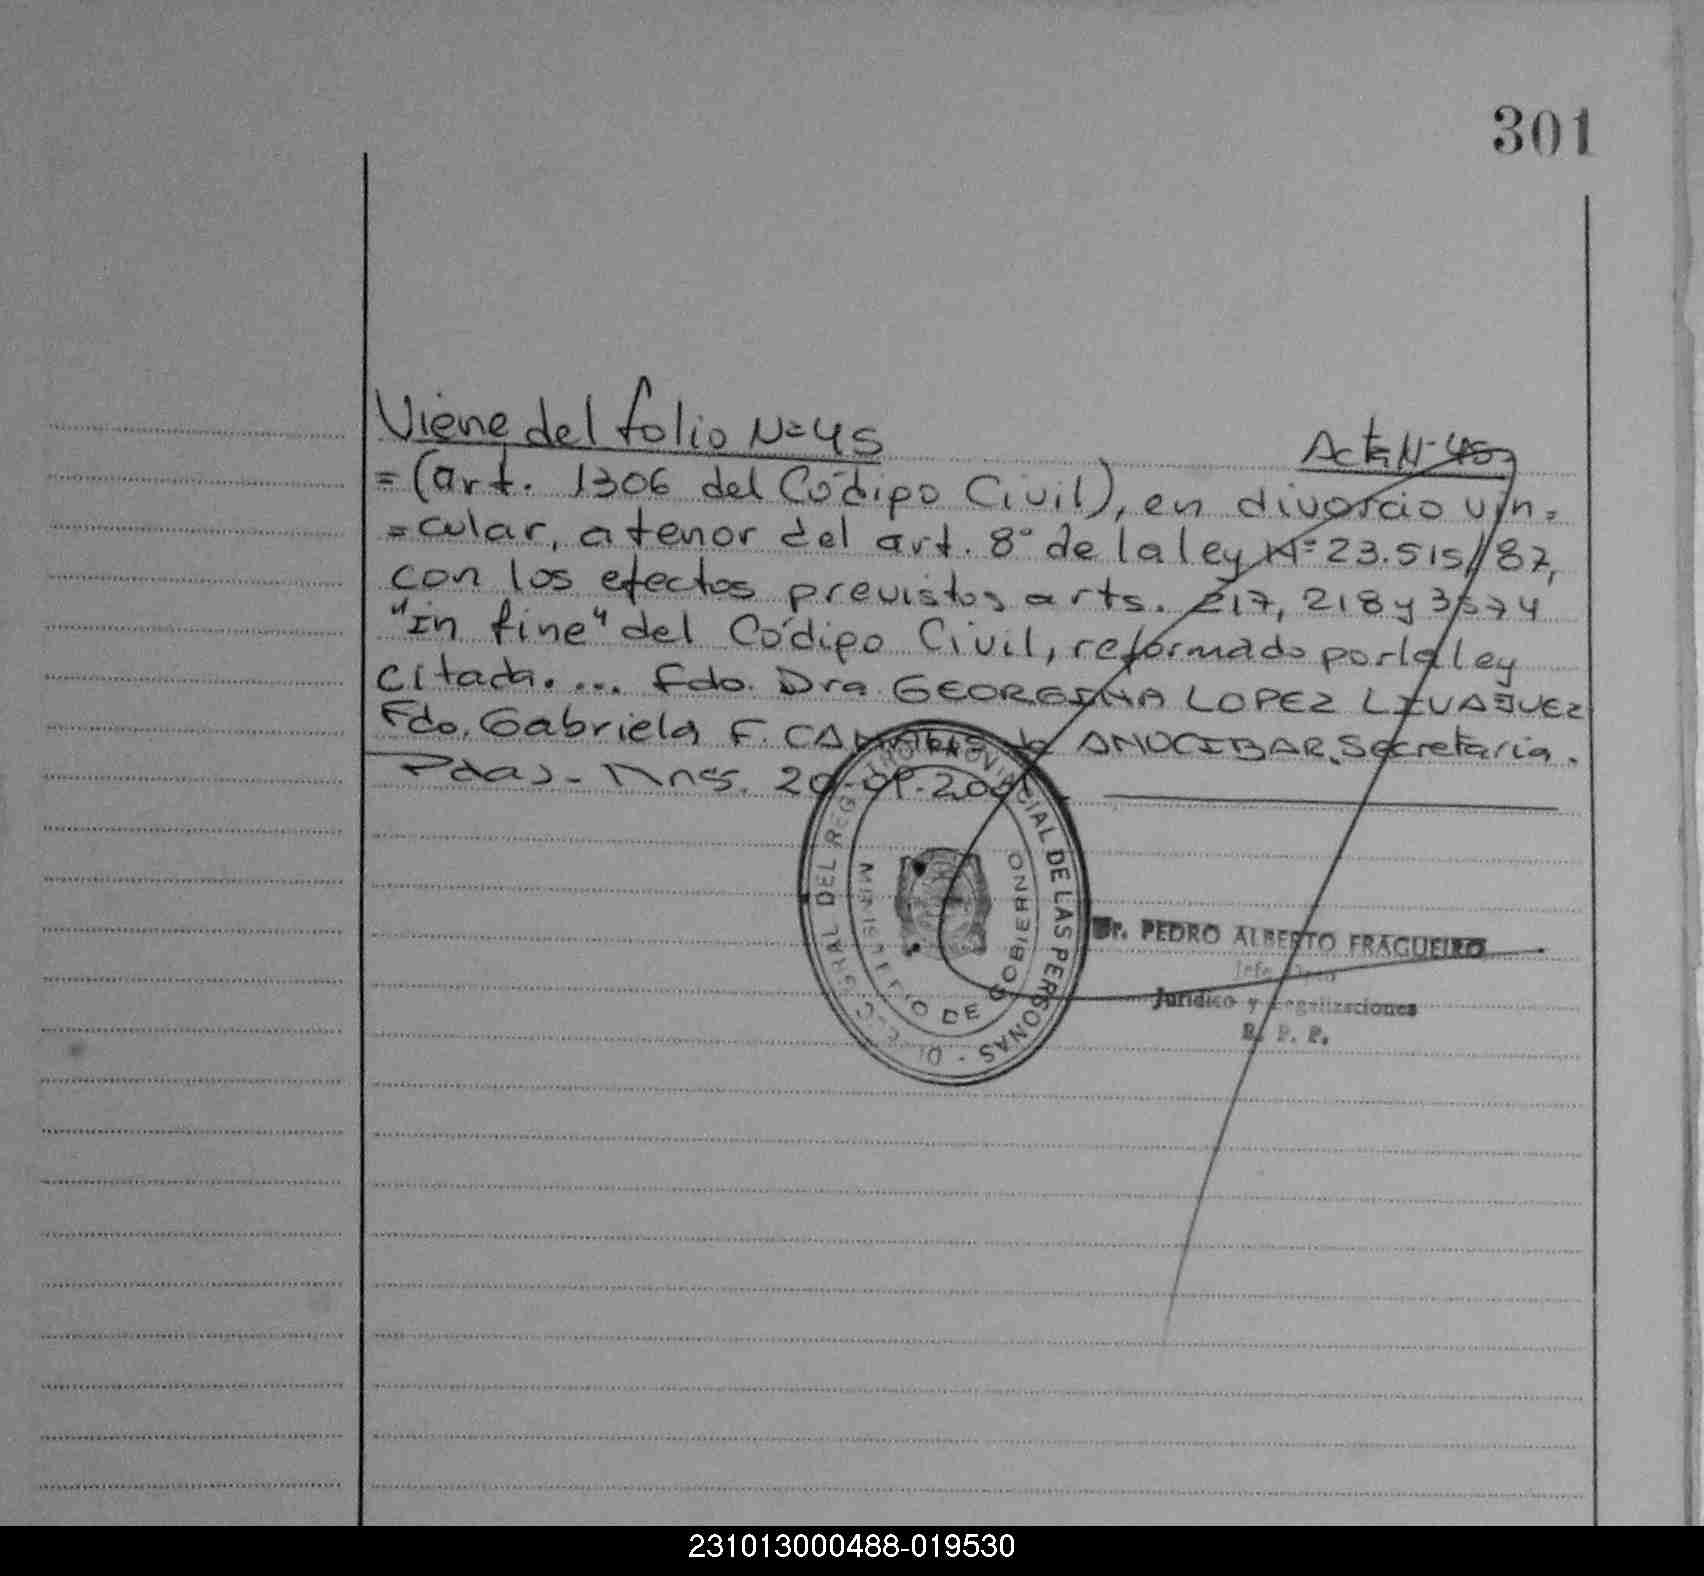 301
Viene del folio N=45
Acta N-45
=(art. 1306 del Código Civil), en divorcio vin=
=cular, a tenor del art. 8° de la ley N=23.515/87,
con los efectos previstos arts. 217, 218 y 3574
"In fine" del Código Civil, reformado por la ley
citada.... Fdo. Dra GEORGINA LOPEZ
Fdo. Gabriela F. de AMOCIBAR, Secretaria.
DEL REGISTRO PROVINCIAL DE LAS PERSONAS -
MINISTERIO DE GOBIERNO
Dr. PEDRO ALBERTO FRAGUEIRO
Jefe
Jurídico y Legalizaciones
R. P. P.
231013000488-019530